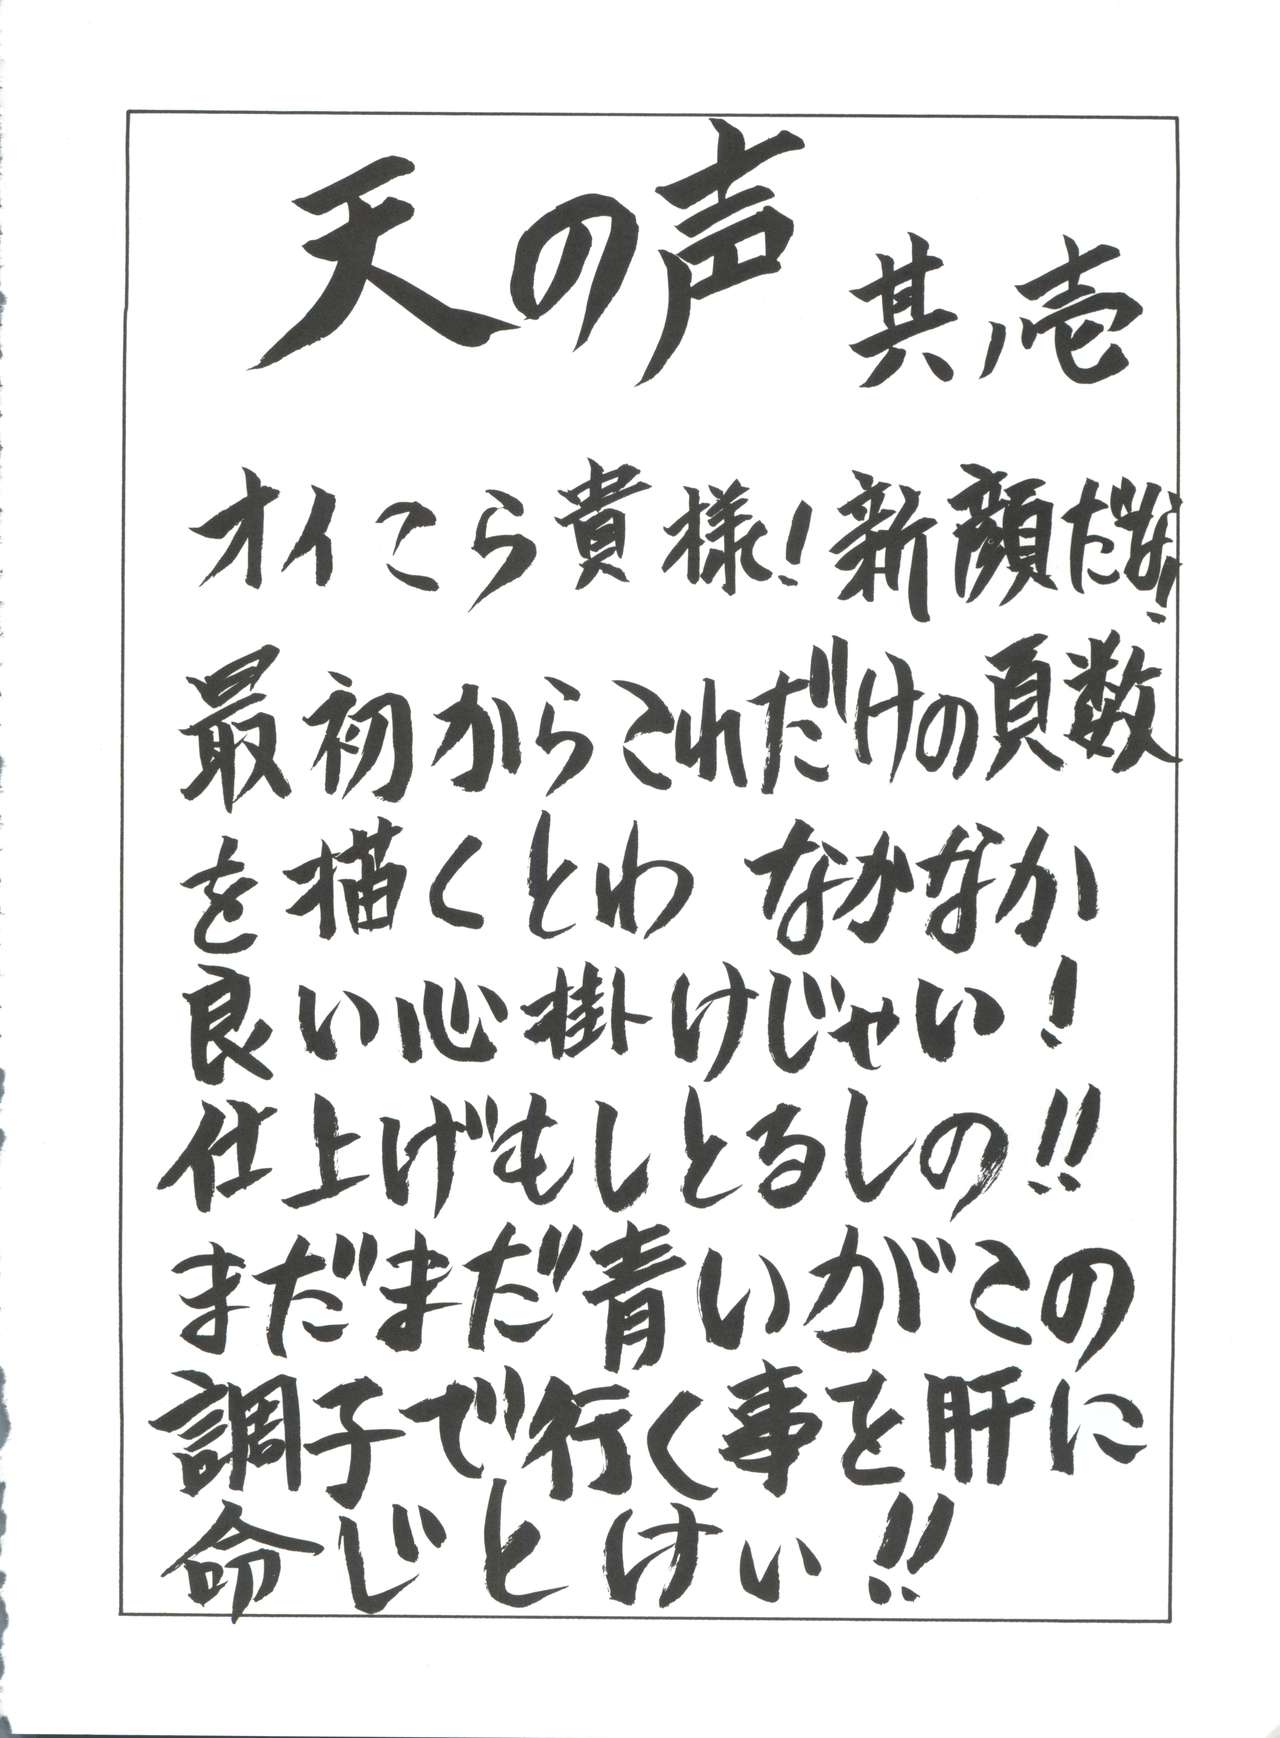 天の声 其ノ壱
オイこら貴様!新顔だな!
最初からこれだけの頁数
を描くとわ なかなか
良い心掛けじゃい!
仕上げもしとるしの!!
まだまだ青いがこの
調子で行く事を肝に
命じとけぃ!!